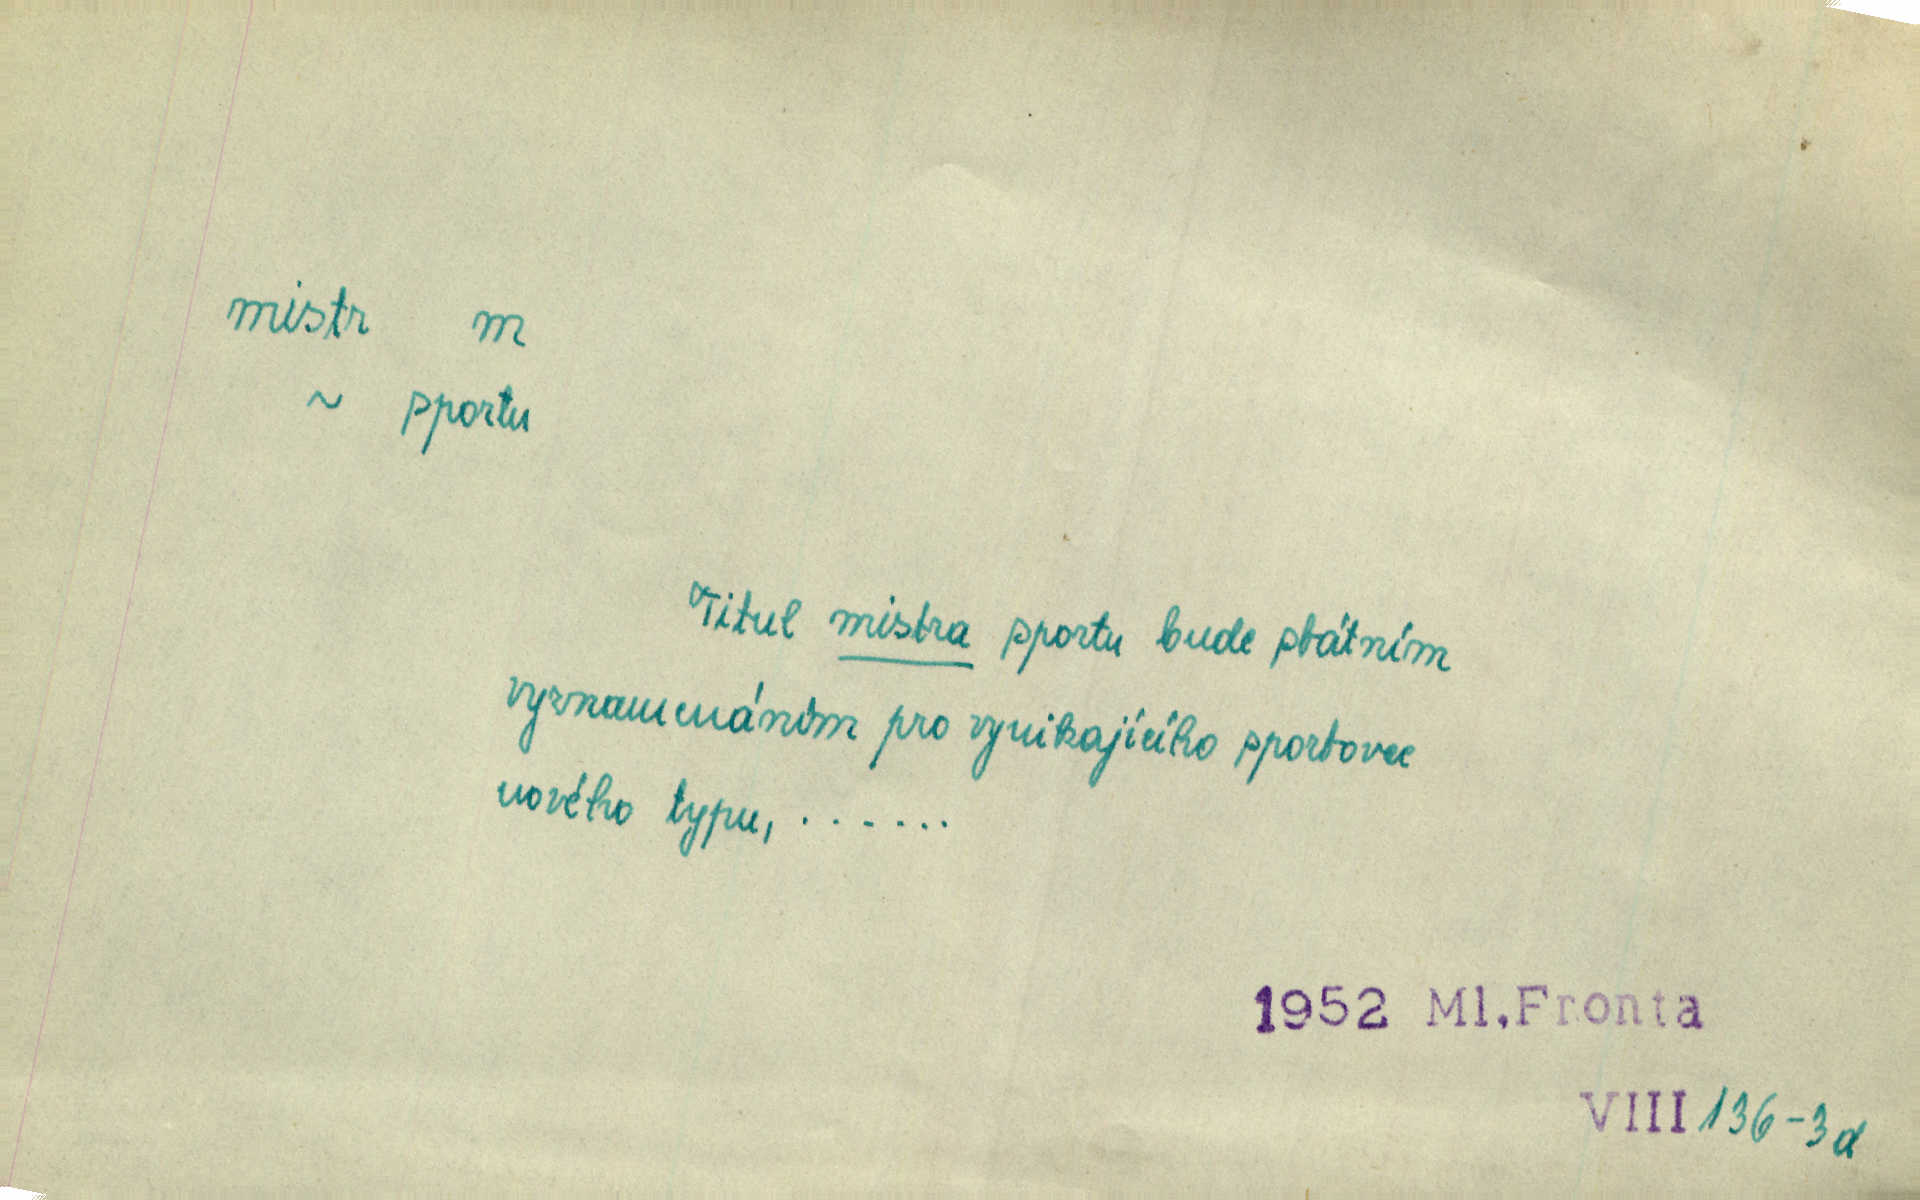 mistr m
~ sportu
Titul mistra sportu bude státním
vyznamenáním pro vynikajícího sportovce
nového typu, . . . . . .
1952 Ml.Fronta
VIII 136-3d